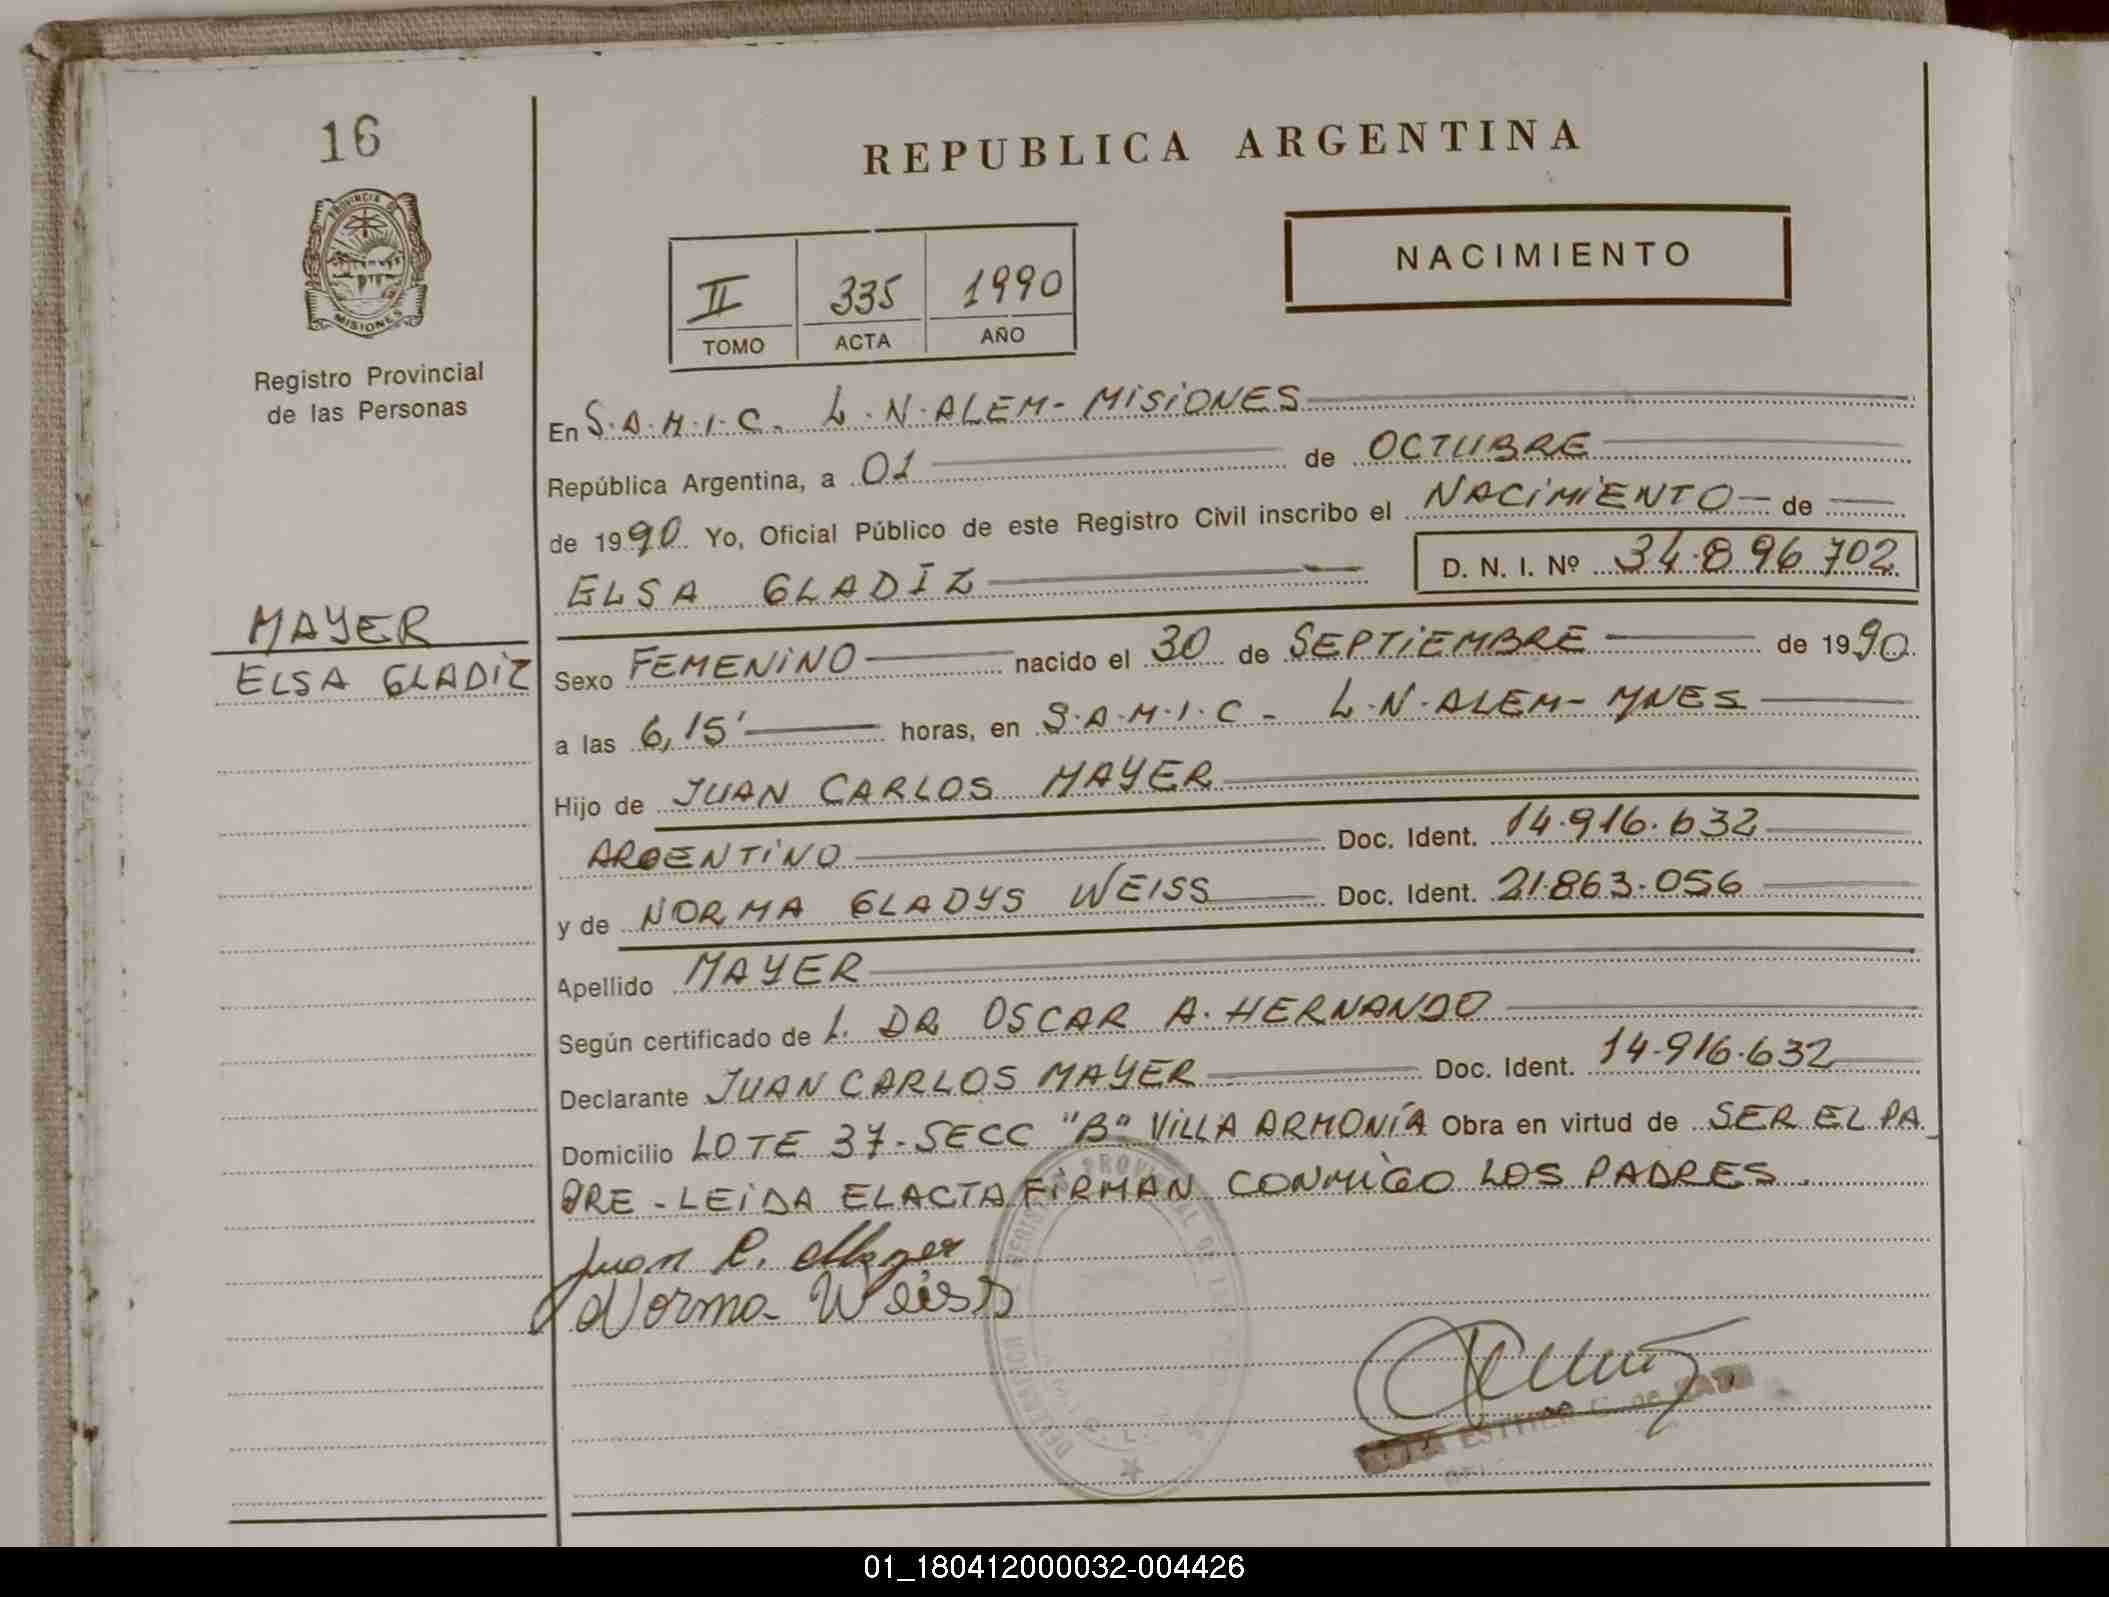 16
REPUBLICA ARGENTINA
PROVINCIA DE
MISIONES
NACIMIENTO
II 335 1990
TOMO ACTA AÑO
Registro Provincial
de las Personas
En S.A.M.I.C. L.N.ALEM- MISIONES
República Argentina, a 01 de OCTUBRE
de 1990 Yo, Oficial Público de este Registro Civil inscribo el NACIMIENTO de
ELSA GLADIZ D. N. I. Nº 34.896.702
MAYER
ELSA GLADIZ
Sexo FEMENINO nacido el 30 de SEPTIEMBRE de 1990
a las 6,15' horas, en S.A.M.I.C - L.N.ALEM- MNES
Hijo de JUAN CARLOS MAYER
ARGENTINO Doc. Ident. 14.916.632
y de NORMA GLADYS WEISS Doc. Ident. 21.863.056
Apellido MAYER
Según certificado de L. DR OSCAR A. HERNANDO
Declarante JUAN CARLOS MAYER Doc. Ident. 14.916.632
Domicilio LOTE 37-SECC "B" VILLA ARMONÍA Obra en virtud de SER EL PA_
DRE - LEIDA EL ACTA FIRMAN CONMIGO LOS PADRES.
Juan C. Mayer
Norma Weiss
01_180412000032-004426